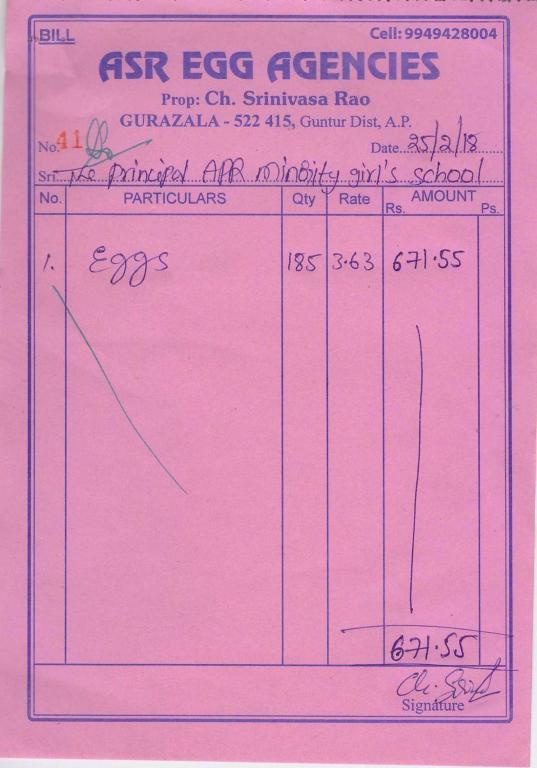 BILL
Cell: 9949428004
ASR EGG AGENCIES
Prop: Ch. Srinivasa Rao
GURAZALA - 522 415, Guntur Dist, A.P.
No. 41 Date 25/2/18
Sri. The principal APR minority girl's school
No. PARTICULARS Qty Rate AMOUNT
Rs. Ps.
1. Eggs 185 3.63 671.55
671.55
Signature